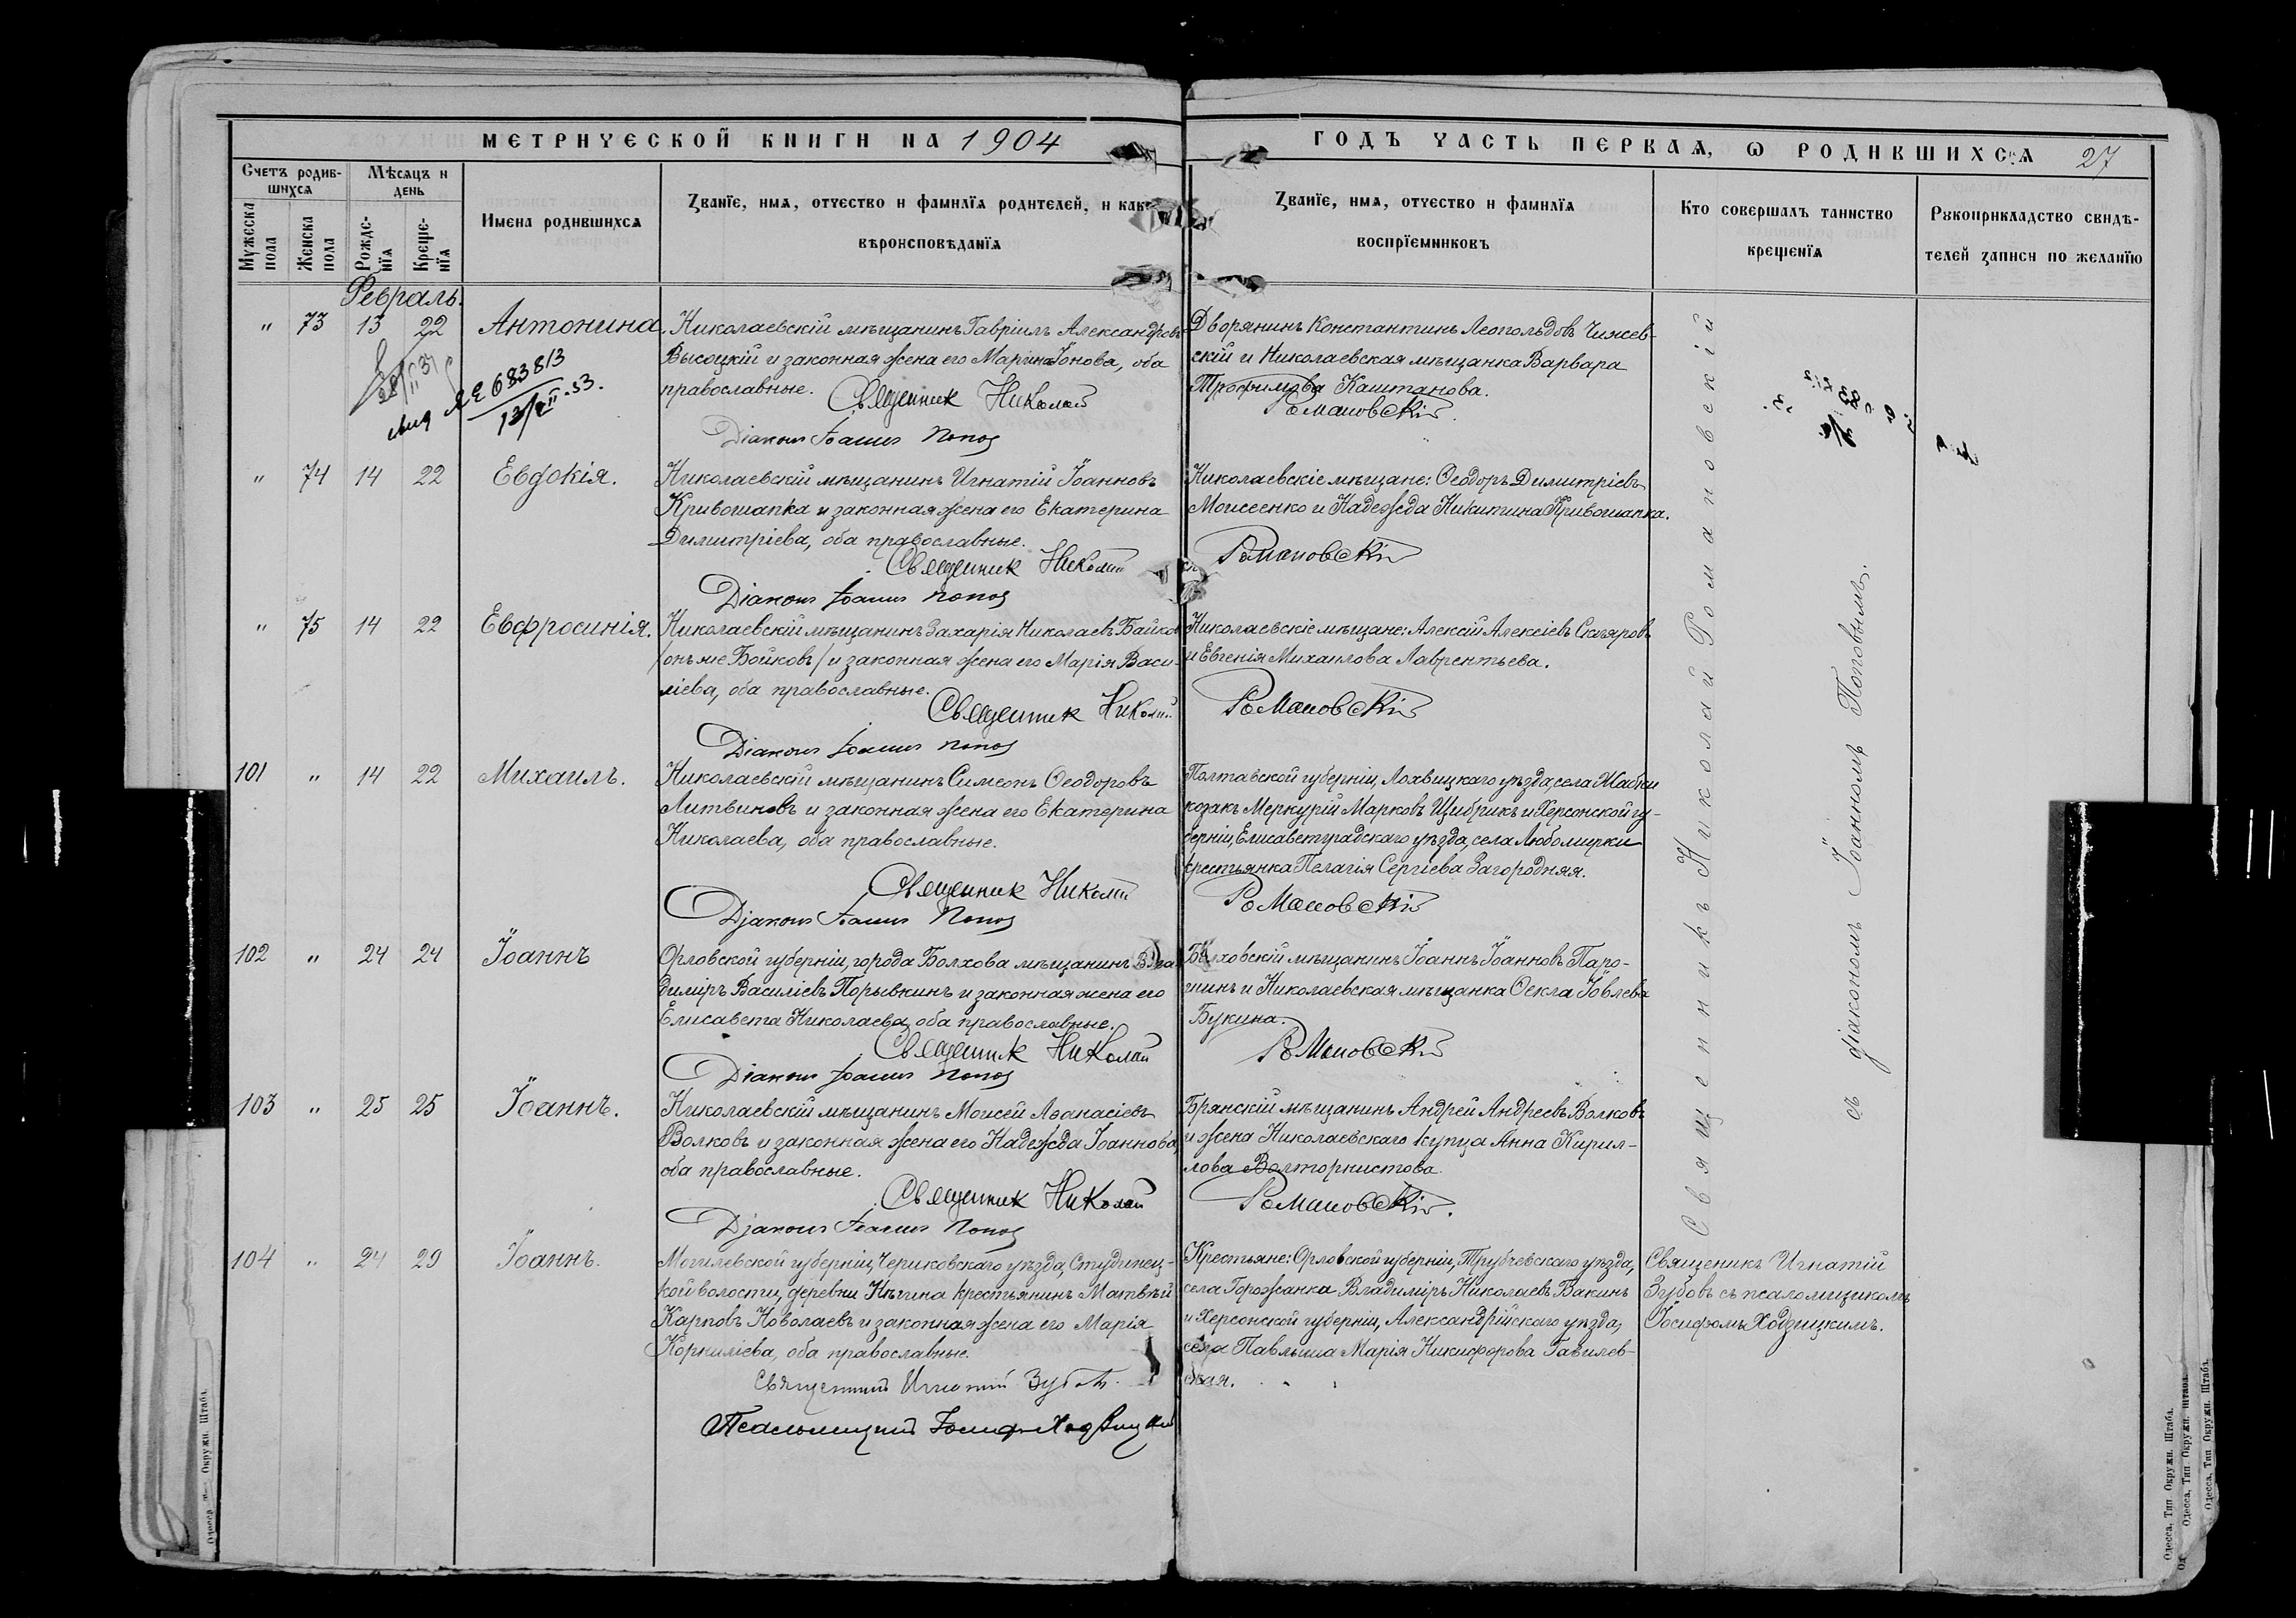 МЕТРИЧЕСКОЙ КНИГИ НА 1904
ГОДЪ ЧАСТЬ ПЕРВАЯ, Ѡ РОДИВШИХСЯ 27
Счетъ родив-
шихся
Мѣсяцъ и
день
Мужеска
пола
Женска
пола
Рожде-
нїя
Креще-
нїя
Имена родившихся
Званїе, имя, отчество и фамилїя родителей, и как
вѣроисповѣданїя
Званїе, имя, отчество и фамилїя
воспрїемниковъ
Кто совершалъ таинство
крещенїя
Рукоприкладство свидѣ-
телей записи по желанїю
Февраль.
" 73 13 22 Антонина.
Николаевскій мѣщанинъ Гавріилъ Александровъ
Высоцкій и законная жена его Марина Іонова, оба
православные. Священник Николай
Діаконъ Іоаннъ Попов
Дворянинъ Константинъ Леопольдовъ Чижев-
скій и Николаевская мѣщанка Варвара
Трофимова Каштанова.
Романовскій.
683813
" 74 14 22 Евдокія.
Николаевскій мѣщанинъ Игнатій Іоанновъ
Кривошапка и законная жена его Екатерина
Димитріева, оба православные.
Священник Николай
Діаконъ Іоаннъ Попов
Николаевскіе мѣщане: Ѳеодоръ Димитріевъ
Моисеенко и Надежда Никитина Кривошапка.
Романовскій
" 75 14 22 Евфросинія.
Николаевскій мѣщанинъ Захарія Николаевъ Байков
/онъ же Бойковъ/ и законная жена его Марія Васи-
ліева, оба православные.
Священник Николай
Діаконъ Іоаннъ Попов
Николаевскіе мѣщане: Алексій Алексіевъ Скляровъ
и Евгенія Михаилова Лаврентьева.
Романовскій
101 " 14 22 Михаилъ.
Николаевскій мѣщанинъ Симеонъ Ѳеодоровъ
Литвиновъ и законная жена его Екатерина
Николаева, оба православные.
Священник Николай
Діаконъ Іоаннъ Попов
Полтавской губерніи, Лохвицкаго уѣзда, села Жабки
козакъ Меркурій Марковъ Щибрикъ и Херсонской гу-
берніи, Елисаветградскаго уѣзда, села Любомирки
крестьянка Пелагія Сергіева Загородняя.
Романовскій
102 " 24 24 Іоаннъ
Орловской губерніи, города Болхова мѣщанинъ Вла
диміръ Василіевъ Порывкинъ и законная жена его
Елисавета Николаева, оба православные.
Священник Николай
Діаконъ Іоаннъ Попов
Болховскій мѣщанинъ Іоаннъ Іоанновъ Паро-
шинъ и Николаевская мѣщанка Ѳекла Іовлева
Букина.
Романовскій
103 " 25 25 Іоаннъ.
Николаевскій мѣщанинъ Моисей Аѳанасіевъ
Волковъ и законная жена его Надежда Іоаннова,
оба православные.
Священник Николай
Діаконъ Іоаннъ Попов
Брянскій мѣщанинъ Андрей Андреевъ Волковъ
и жена Николаевскаго купца Анна Кирил-
лова Валторнистова.
Романовскій.
104 " 24 29 Іоаннъ.
Могилевской губерніи, Чериковскаго уѣзда, Студинец-
кой волости, деревни Нѣгина крестьянинъ Матвѣй
Карповъ Новолаевъ и законная жена его Марія
Корниліева, оба православные.
Священникъ Игнатій Зубовъ.
Псаломщикъ Іосифъ Ходзицкій
Крестьяне: Орловской губерніи, Трубчевскаго уѣзда,
села Горожанка Владиміръ Николаевъ Вакинъ
и Херсонской губерніи, Александрійскаго уѣзда,
села Павлыша Марія Никифорова Гавилев-
ская.
Священникъ Игнатій
Зубовъ съ псаломщикомъ
Іосифомъ Ходзицкимъ.
Священникъ Николай Романовскій
съ діакономъ Іоанномъ Поповымъ.
Одесса, Тип. Окружн. Штаба.
Одесса, Тип. Окружн. Штаба.
Одесса, Тип. Окружн. Штаба.